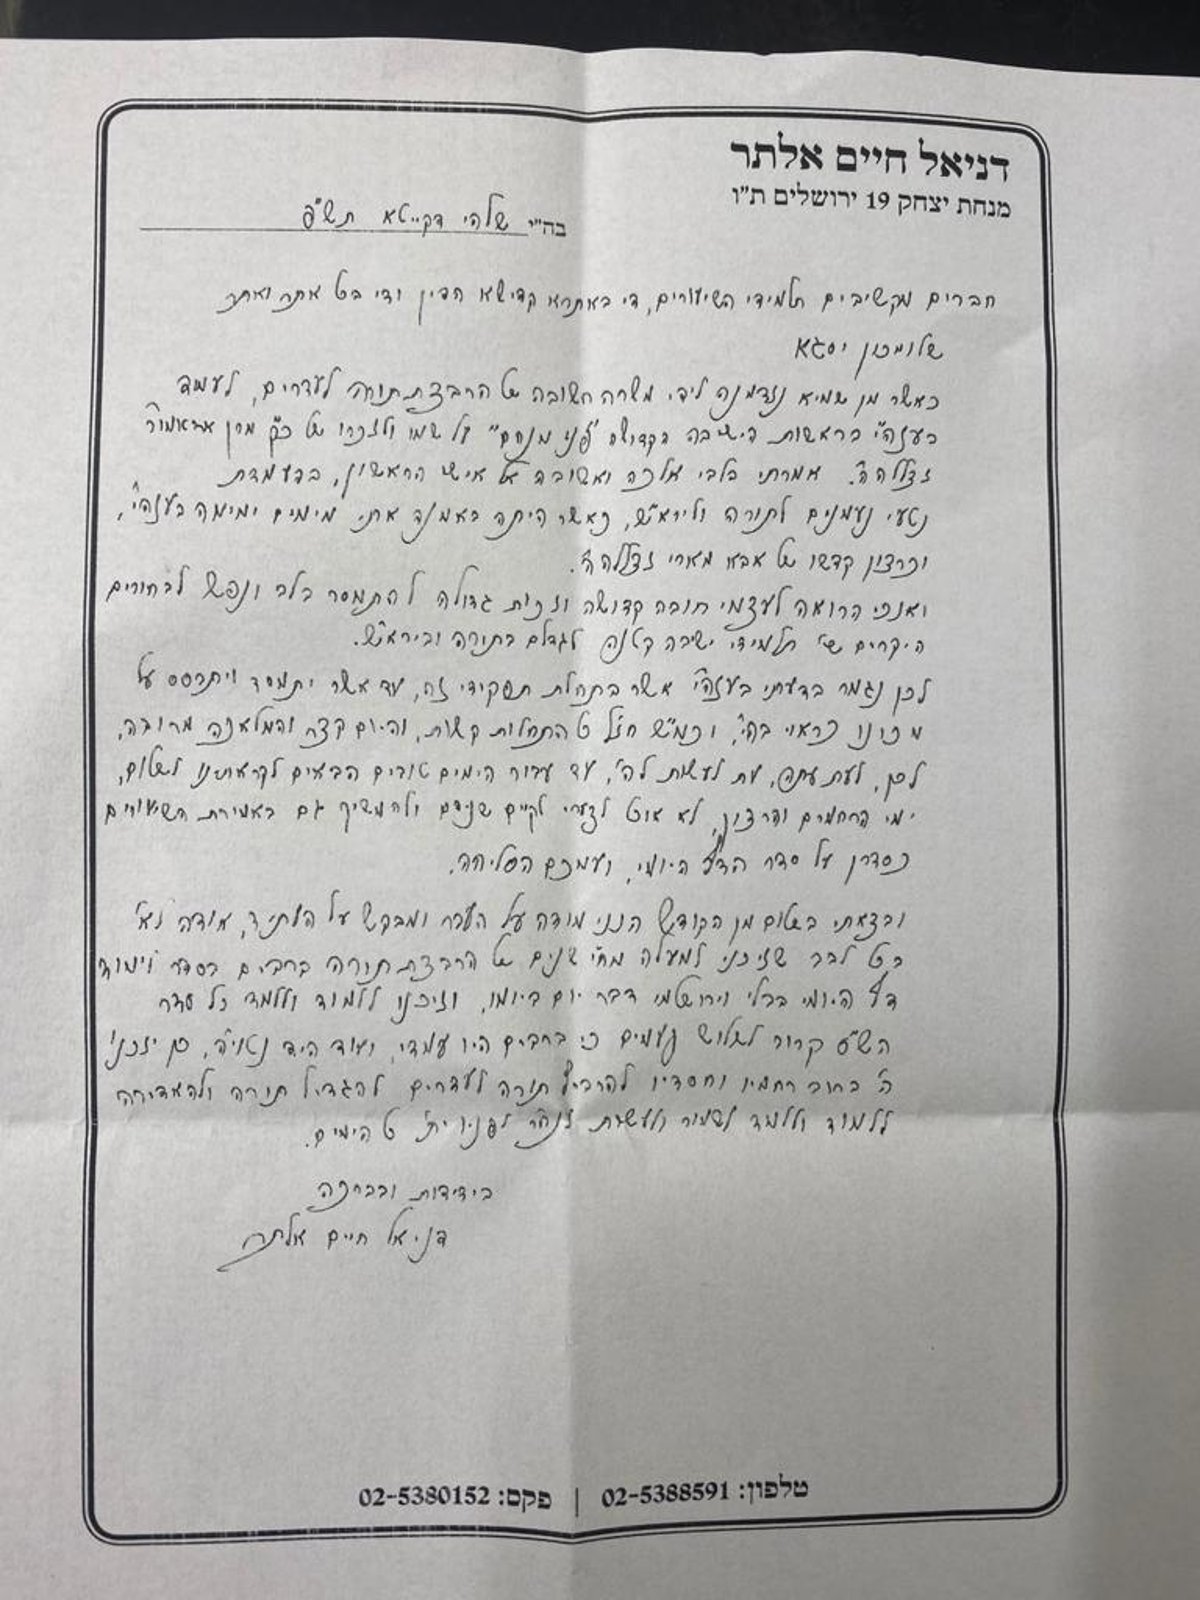 דניאל חיים אלתר
מנחת יצחק 19 ירושלים ת"ו
בה"י שלהי דקייטא תש"פ
חברים מקשיבים תלמידי השיעורים, די באתרא קדישא הדין ודי בכל אתר ואתר
שלומכון יסגא
כאשר מן שמיא נזדמנה לידי משרה חשובה של הרבצת תורה לעדרים, לעמוד
בעזה"י בראשות הישיבה הקדושה "פני מנחם" על שמו ולזכרו של כ"ק מרן אאמו"ר
זצללה"ה. אמרתי בלבי אלכה ואשובה אל אישי הראשון, בהעמדת
נטעי נעמנים לתורה וליראה"ש, כאשר היתה באמנה אתי מימים ימימה בעזה"י,
וכרצון קדשו של אבא מארי זצללה"ה.
ואנכי הרואה לעצמי חובה קדושה וזכות גדולה להתמסר בלב ונפש לבחורים
היקרים שי' תלמידי ישיבה קטנה לגדלם בתורה וביראה"ש.
לכן נגמר בדעתי בעזה"י אשר בתחלת תפקידי זה, עד אשר יתמסד ויתבסס על
מכונו כראוי בה"י, וכמ"ש חז"ל כל התחלות קשות, והיום קצר והמלאכה מרובה,
לכן, לעת עתה, עת לעשות לה', עד עבור הימים טובים הבאים לקראתינו לשלום,
ימי הרחמים והרצון, לא אוכל לצערי לקיים שניהם ולהמשיך גם באמירת השיעורים
כסדרן על סדר הדף היומי, ועמכם הסליחה.
ובצאתי בשלום מן הקודש הנני מודה על העבר ומבקש על העתיד, אודה לא-ל
בכל לבב שזיכני למעלה מח"י שנים של הרבצת תורה ברבים כסדר לימוד
דף היומי בבלי וירושלמי דבר יום ביומו, וזיכנו ללמוד וללמד כל סדר
הש"ס קרוב לשלוש פעמים כי ברבים היו עמדי, ועוד היד נטוי"ה, כן יזכנו
ה' ברוב רחמיו וחסדיו להרביץ תורה לעדרים להגדיל תורה ולהאדירה
ללמוד וללמד לשמור ולעשות נח"ר לפניו ית' כל הימים.
בידידות ובברכה
דניאל חיים אלתר
טלפון: 02-5388591 | פקס: 02-5380152